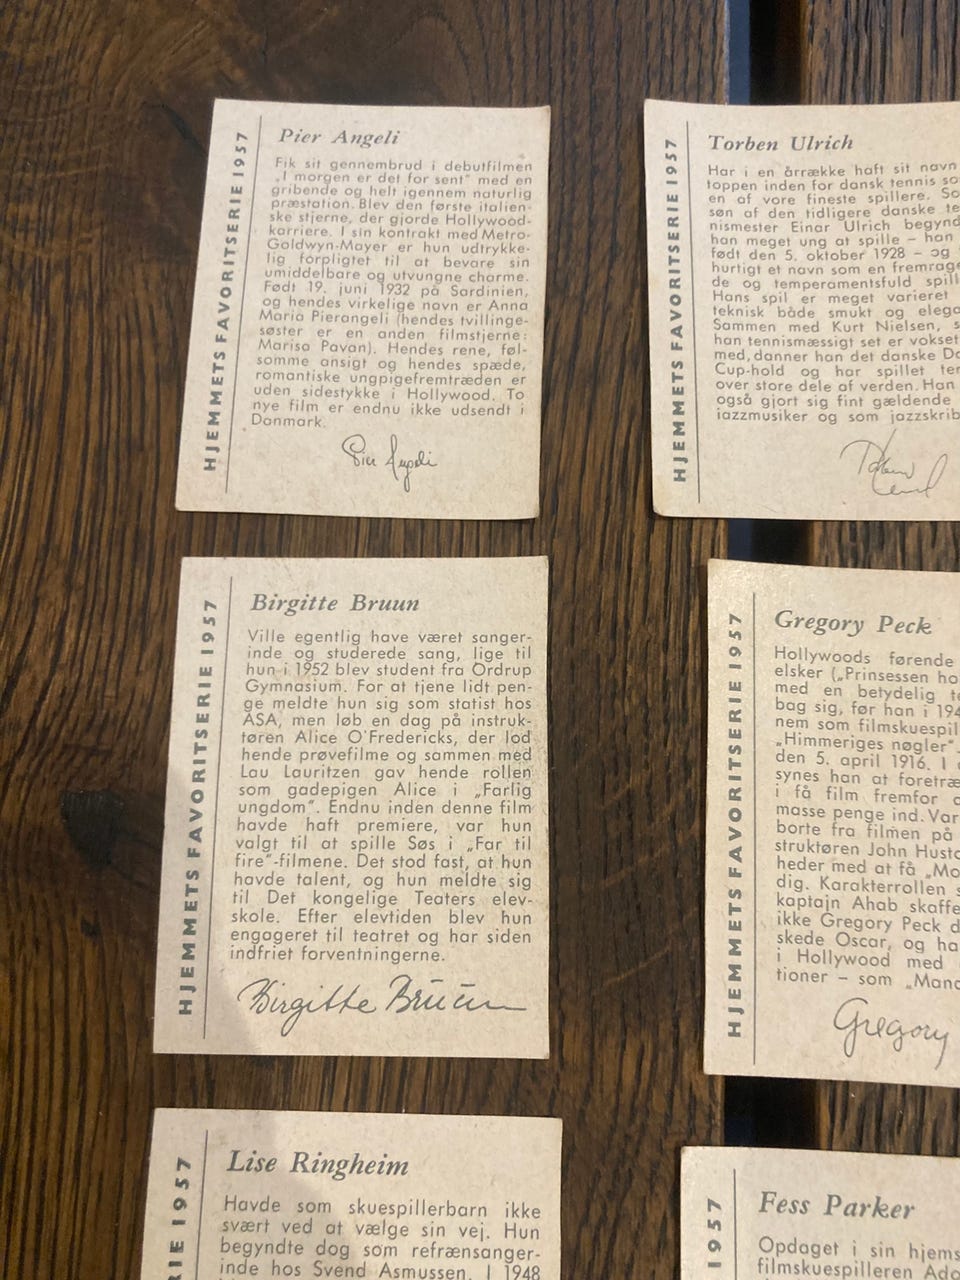 HJEMMETS FAVORITSERIE 1957
Pier Angeli
Fik sit gennembrud i debutfilmen
„I morgen er det for sent" med en
gribende og helt igennem naturlig
præstation. Blev den første italien-
ske stjerne, der gjorde Hollywood-
karriere. I sin kontrakt med Metro-
Goldwyn-Mayer er hun udtrykke-
lig forpligtet til at bevare sin
umiddelbare og utvungne charme.
Født 19. juni 1932 på Sardinien,
og hendes virkelige navn er Anna
Maria Pierangeli (hendes tvillinge-
søster er en anden filmstjerne:
Marisa Pavan). Hendes rene, føl-
somme ansigt og hendes spæde,
romantiske ungpigefremtræden er
uden sidestykke i Hollywood. To
nye film er endnu ikke udsendt i
Danmark.
Pier Angeli
HJEMMETS FAVORITSERIE 1957
Torben Ulrich
Har i en årrække haft sit navn
toppen inden for dansk tennis so
en af vore fineste spillere. So
søn af den tidligere danske te
nismester Einar Ulrich begynd
han meget ung at spille – han
født den 5. oktober 1928 – og
hurtigt et navn som en fremrage
de og temperamentsfuld spill
Hans spil er meget varieret
teknisk både smukt og elega
Sammen med Kurt Nielsen, s
han tennismæssigt set er vokset
med, danner han det danske Da
Cup-hold og har spillet ten
over store dele af verden. Han
også gjort sig fint gældende
jazzmusiker og som jazzskrib
Torben
HJEMMETS FAVORITSERIE 1957
Birgitte Bruun
Ville egentlig have været sanger-
inde og studerede sang, lige til
hun i 1952 blev student fra Ordrup
Gymnasium. For at tjene lidt pen-
ge meldte hun sig som statist hos
ASA, men løb en dag på instruk-
tøren Alice O'Fredericks, der lod
hende prøvefilme og sammen med
Lau Lauritzen gav hende rollen
som gadepigen Alice i „Farlig
ungdom". Endnu inden denne film
havde haft premiere, var hun
valgt til at spille Søs i „Far til
fire"-filmene. Det stod fast, at hun
havde talent, og hun meldte sig
til Det kongelige Teaters elev-
skole. Efter elevtiden blev hun
engageret til teatret og har siden
indfriet forventningerne.
Birgitte Bruun
HJEMMETS FAVORITSERIE 1957
Gregory Peck
Hollywoods førende
elsker („Prinsessen ho
med en betydelig te
bag sig, før han i 194
nem som filmskuespil
„Himmeriges nøgler".
den 5. april 1916. I
synes han at foretræ
i få film fremfor
masse penge ind. Var
borte fra filmen på
struktøren John Husto
heder med at få „Mo
dig. Karakterrollen s
kaptajn Ahab skaffe
ikke Gregory Peck d
skede Oscar, og ha
i Hollywood med
tioner – som „Manc
Gregory
RIE 1957
Lise Ringheim
Havde som skuespillerbarn ikke
svært ved at vælge sin vej. Hun
begyndte dog som refrænsanger-
inde hos Svend Asmussen. I 1948
1957
Fess Parker
Opdaget i sin hjems
filmskuespilleren Ado